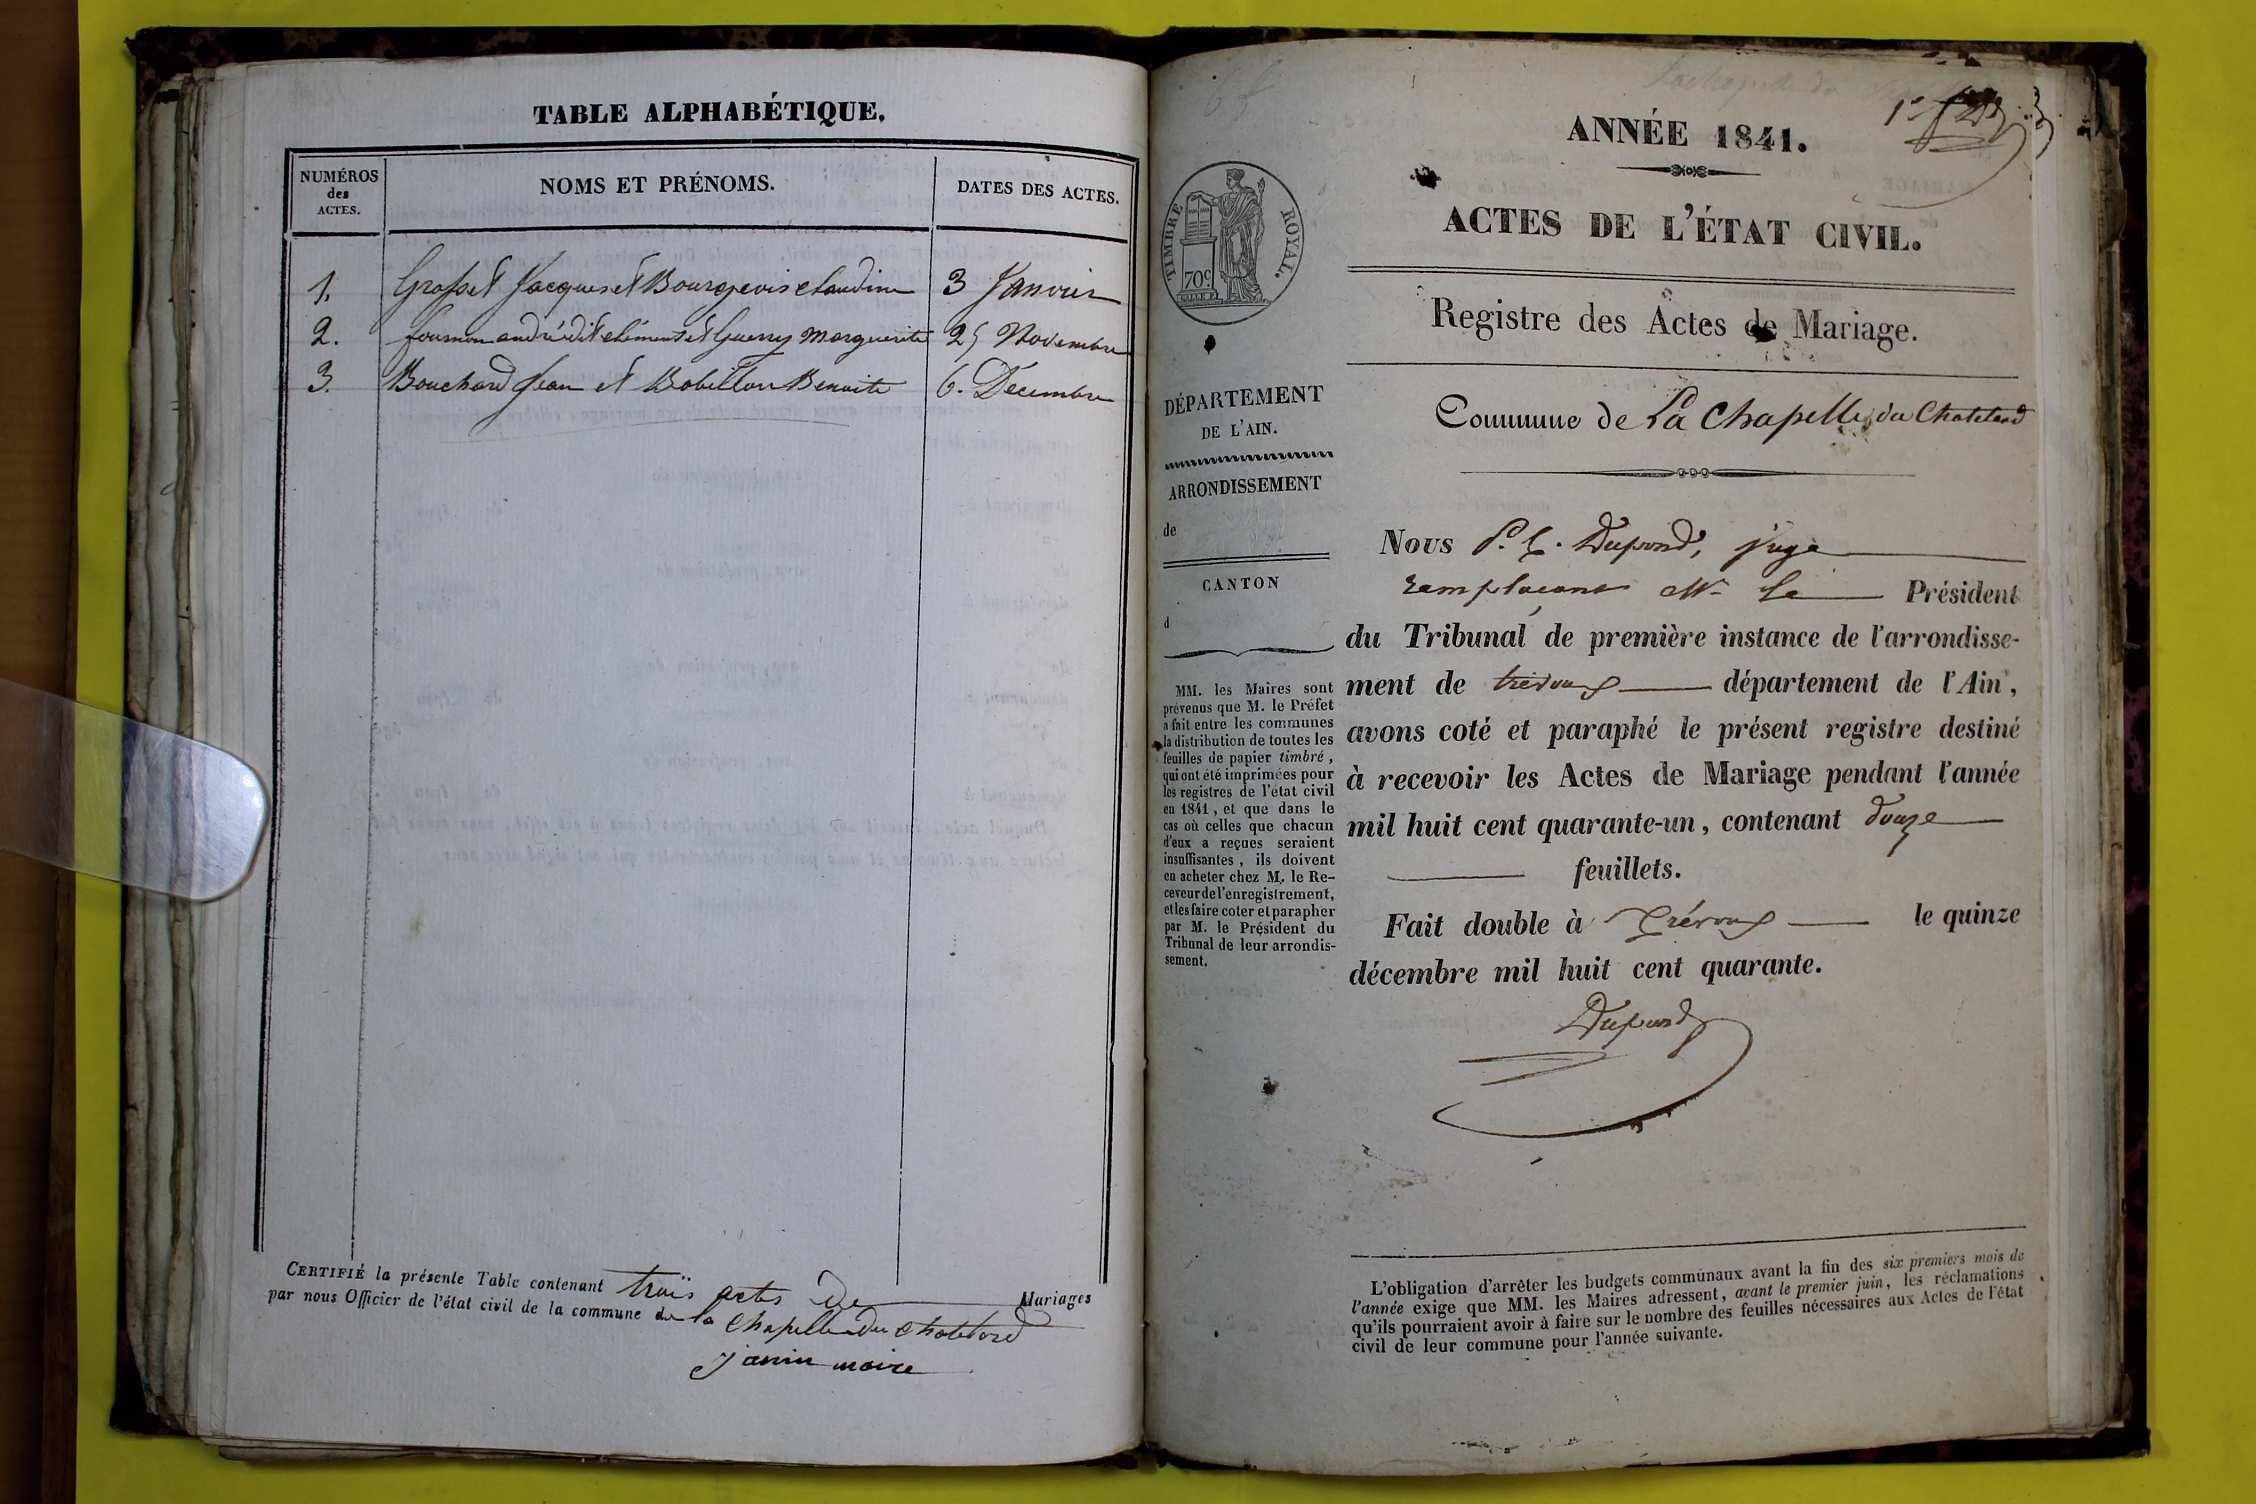 TABLE ALPHABÉTIQUE.
NUMÉROS
des
ACTES.
NOMS ET PRÉNOMS.
DATES DES ACTES.
1. Grosset Jacques et Bourgeois claudine 3 Janvier
2. fournon andré dit clément et Guerry Marguerite 25 Novembre
3. Bouchard Jean et Bobillon Benoite 6. Décembre
CERTIFIÉ la présente Table contenant trois actes de Mariages
par nous Officier de l'état civil de la commune de la Chapelle du Chatelard
janin maire
ANNÉE 1841.
ACTES DE L'ÉTAT CIVIL.
TIMBRE ROYAL.
70 c
Registre des Actes de Mariage.
Commune de La Chapelle du Chatelard
DÉPARTEMENT
DE L'AIN.
ARRONDISSEMENT
de
CANTON
d
MM. les Maires sont
prévenus que M. le Préfet
a fait entre les communes
la distribution de toutes les
feuilles de papier timbré,
qui ont été imprimées pour
les registres de l'état civil
en 1841, et que dans le
cas où celles que chacun
d'eux a reçues seraient
insuffisantes, ils doivent
en acheter chez M. le Re-
ceveur de l'enregistrement,
et les faire coter et parapher
par M. le Président du
Tribunal de leur arrondis-
sement.
Nous P. C. Dupond, juge
remplacant Mr le Président
du Tribunal de première instance de l'arrondisse-
ment de trévoux département de l'Ain,
avons coté et paraphé le présent registre destiné
à recevoir les Actes de Mariage pendant l'année
mil huit cent quarante-un, contenant douze
feuillets.
Fait double à Trévoux le quinze
décembre mil huit cent quarante.
Dupond
L'obligation d'arrêter les budgets communaux avant la fin des six premiers mois de
l'année exige que MM. les Maires adressent, avant le premier juin, les réclamations
qu'ils pourraient avoir à faire sur le nombre des feuilles nécessaires aux Actes de l'état
civil de leur commune pour l'année suivante.